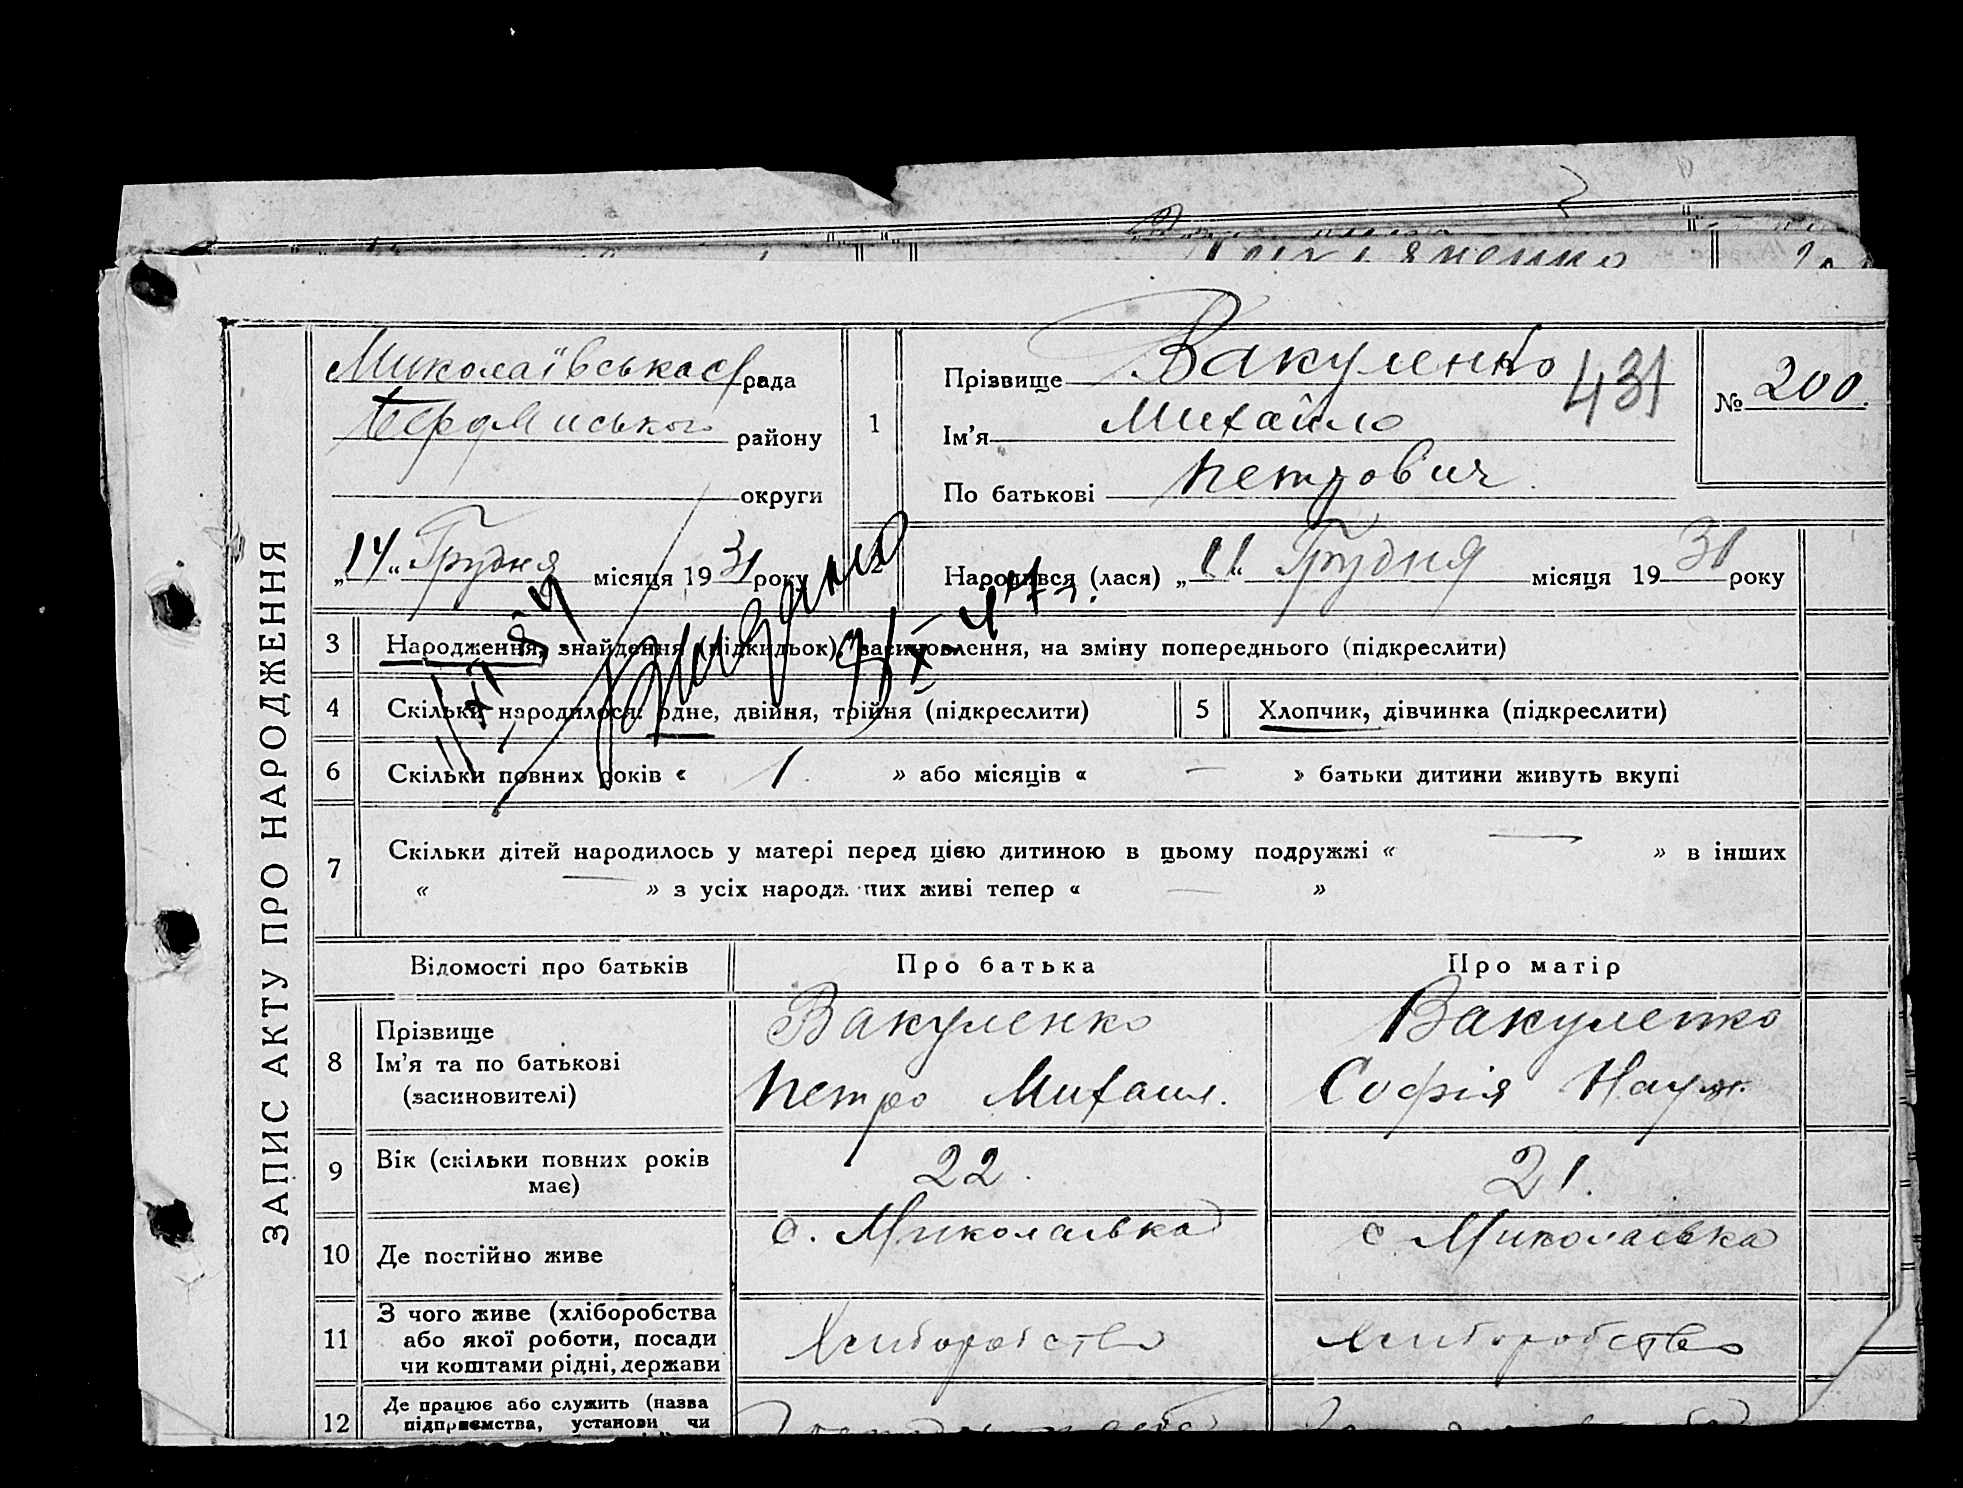 ЗАПИС АКТУ ПРО НАРОДЖЕННЯ
Миколаївська с/рада
районну
округи
„14“ Грудня місяця 1931 року
1
Прізвище Вакуленко
431
Ім'я Михайло
По батькові Петрович
№ 200.
2
Народився (лася) „11“ Грудня місяця 1931 року
3 Народження, знайдення (підкидьок), засиновлення, на зміну попереднього (підкреслити)
4 Скільки народилося: одне, двійня, трійня (підкреслити)
5 Хлопчик, дівчинка (підкреслити)
6 Скільки повних років « 1. » або місяців « — » батьки дитини живуть вкупі
7 Скільки дітей народилось у матері перед цією дитиною в цьому подружжі « — » в інших
« — » з усіх народж них живі тепер « — »
Відомості про батьків Про батька Про матір
8 Прізвище Вакуленко Вакуленко
Ім'я та по батькові Петро Михаил. Софія Наум.
(засиновителі)
9 Вік (скільки повних років має) 22. 21.
10 Де постійно живе с. Миколаївка с. Миколаївка
11 З чого живе (хліборобства Хліборобство Хліборобство
або якої роботи, посади
чи коштами рідні, держави
12 Де працює або служить (назва
підприємства, установи чи